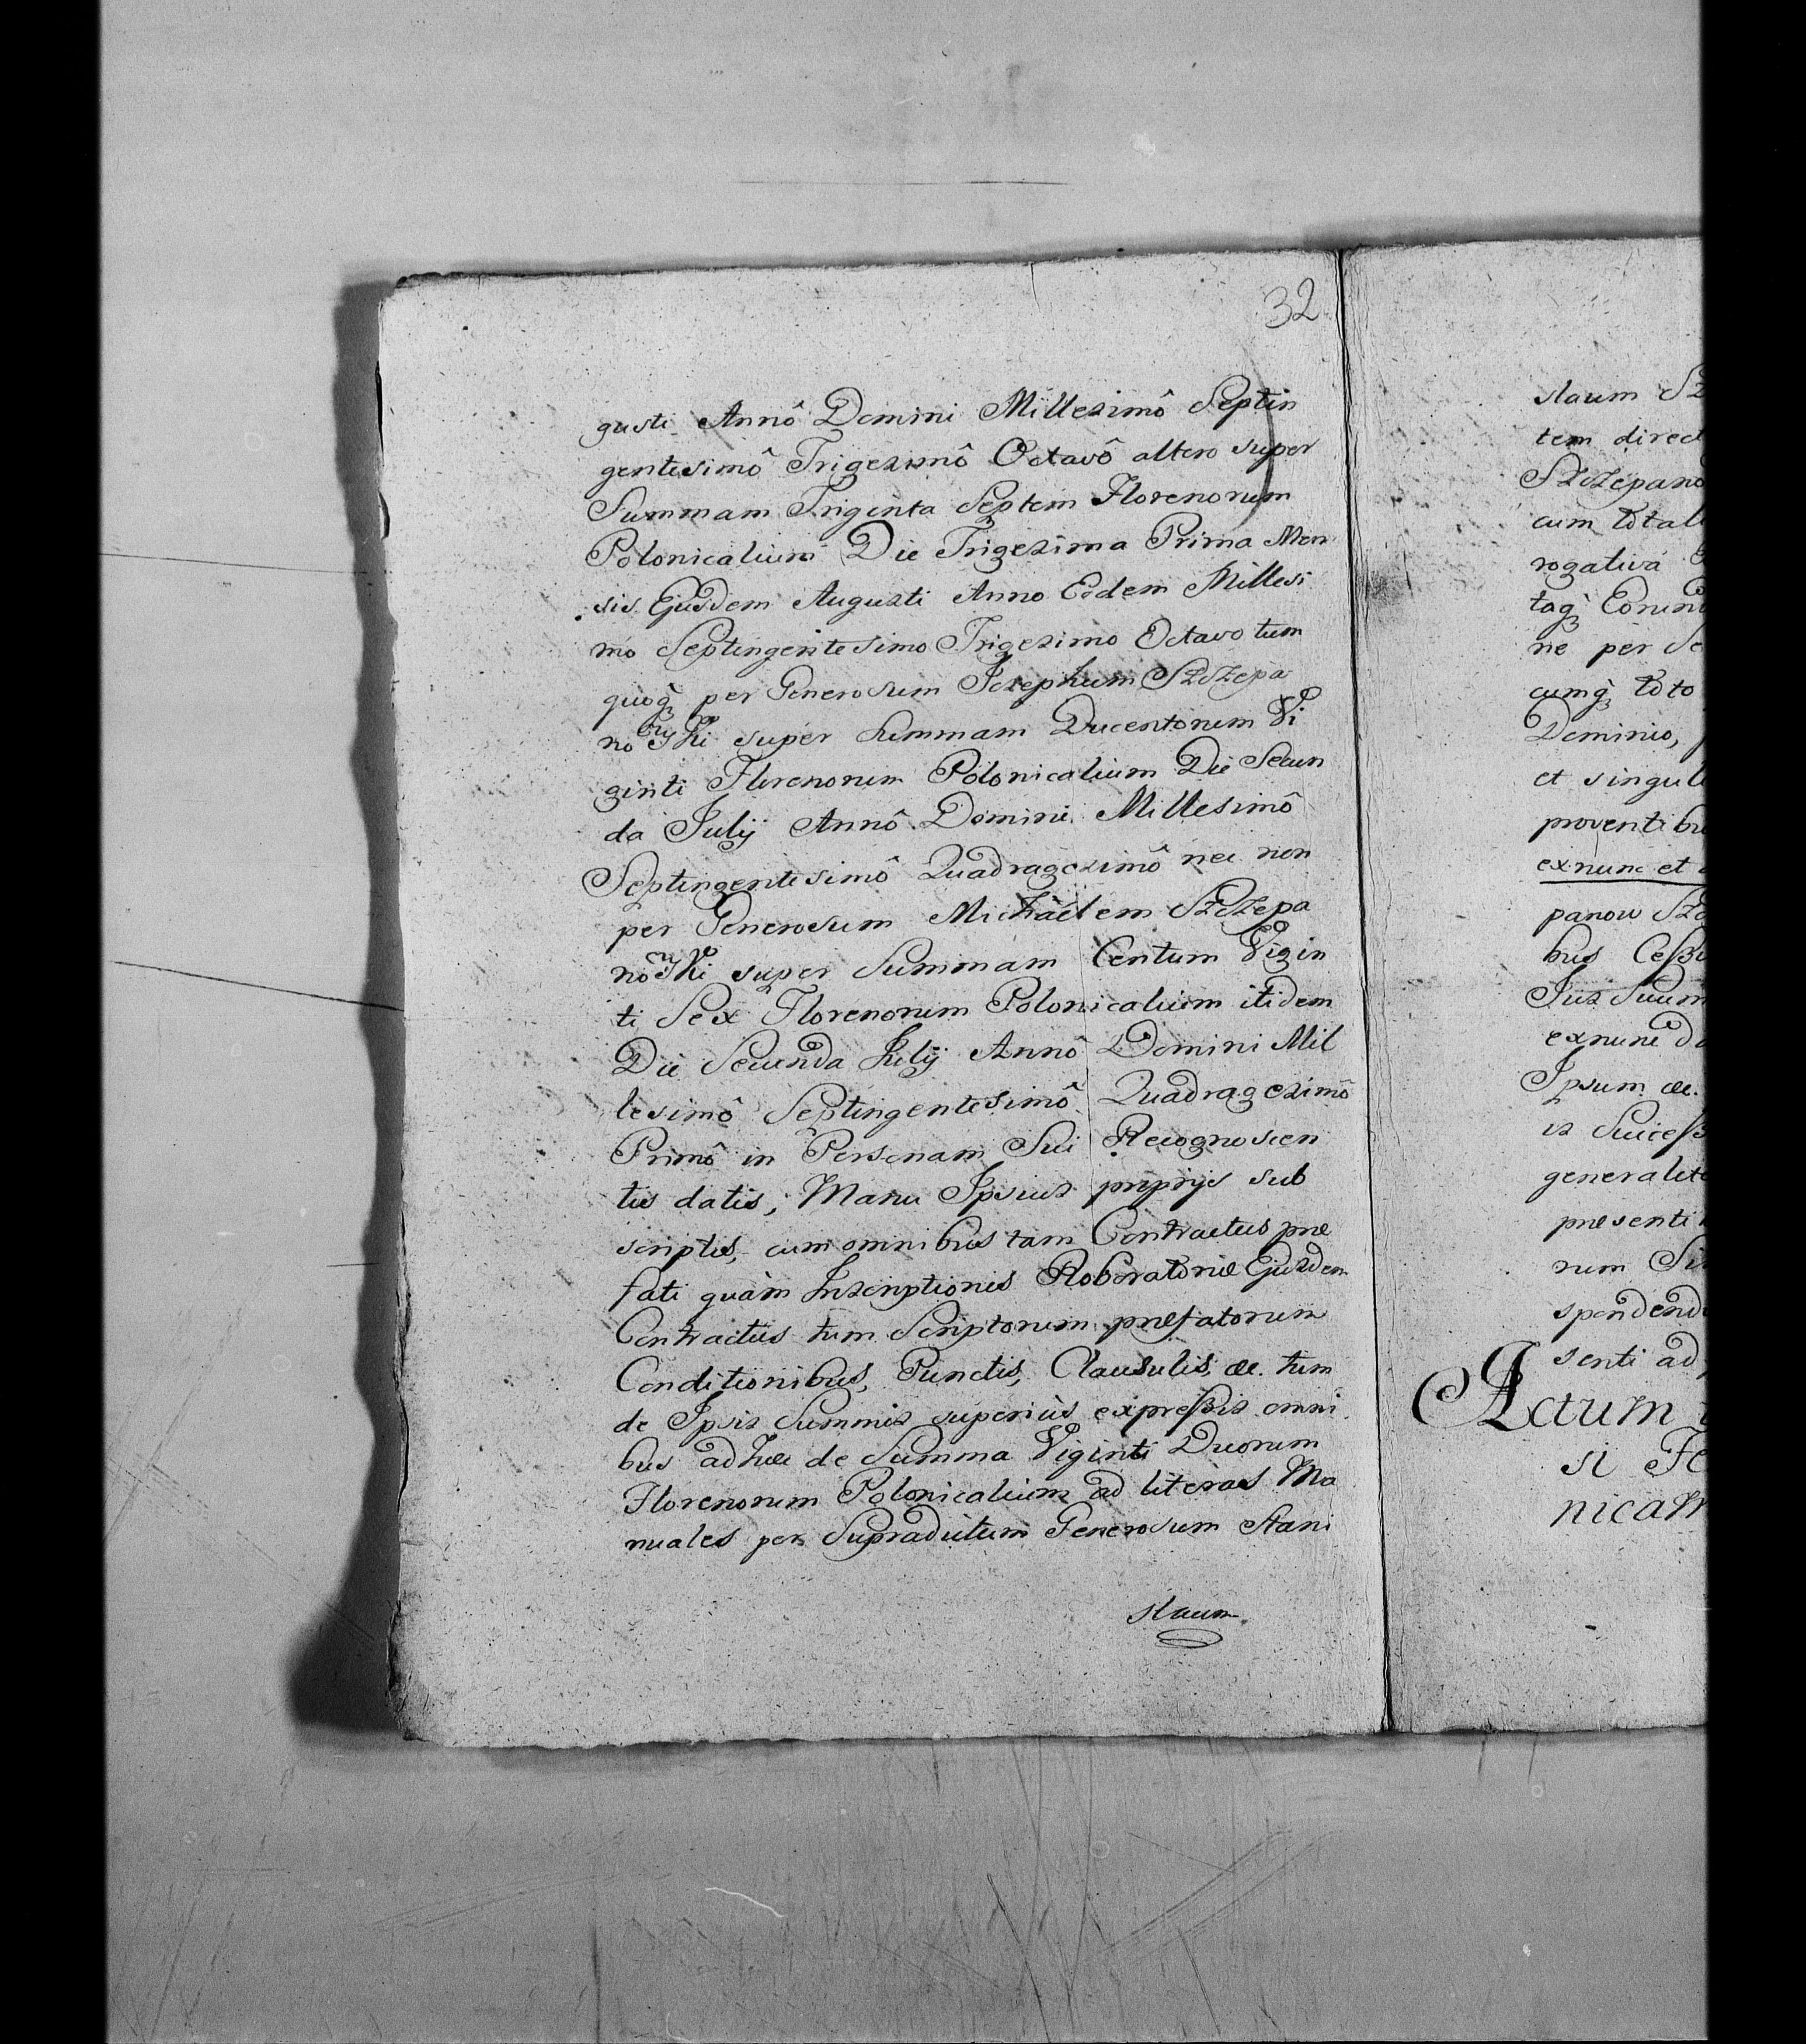 32
gusti Annô Domini Millesimô Septin
gentesimô Trigesimô Octavô altero super
Summam Triginta Septem Florenorum
Polonicalium Die Trigesima Prima Men
sis Ejusdem Augusti Anno Eodem Millesi
mo Septingentesimo Trigesimo Octavo tum
quoq3 per Generosum Josephum Szczepa
nowski super Summam Ducentorum Vi
ginti Florenorum Polonicalium Die Secun
da Julij Annô Domini Millesimô
Septingentesimô Quadragesimô nec non
per Generosum Michaëlem Szczepa
nowski super Summam Centum Vigin
ti Sex Florenorum Polonicalium itidem
Die Secunda Julij Annô Domini Mil
lesimô Septingentesimô Quadragesimô
Primô in Personam Sui Recognoscen
tis datis, Manu Ipsius proprijs sub
scriptis, cum omnibus tam Contractus præ
fati quàm Inscriptionis Roboratoriæ Ejusdem
Contractus tum Scriptorum præfatorum
Conditionibus, Punctis, Clausulis, &c. tum
de Ipsis Summis superiùs expreßis omni
bus adhuc de Summa Viginti Duorum
Florenorum Polonicalium ad literas Ma
nuales per Supradictum Generosum Stani
slaum
slaum Sz
tem direct
Szczepano
cum total
rogativa
taq3 Eorum
ne per Se
cumq3 toto
Dominio,
et singul
proventibu
exnunc et
panow Szc
bus Ceßi
Jus Suum
exnunc do
Ipsum &c.
is Succeß
generalite
præsenti
rum Si
spondend
senti ad
Actum
si Fe
nicam